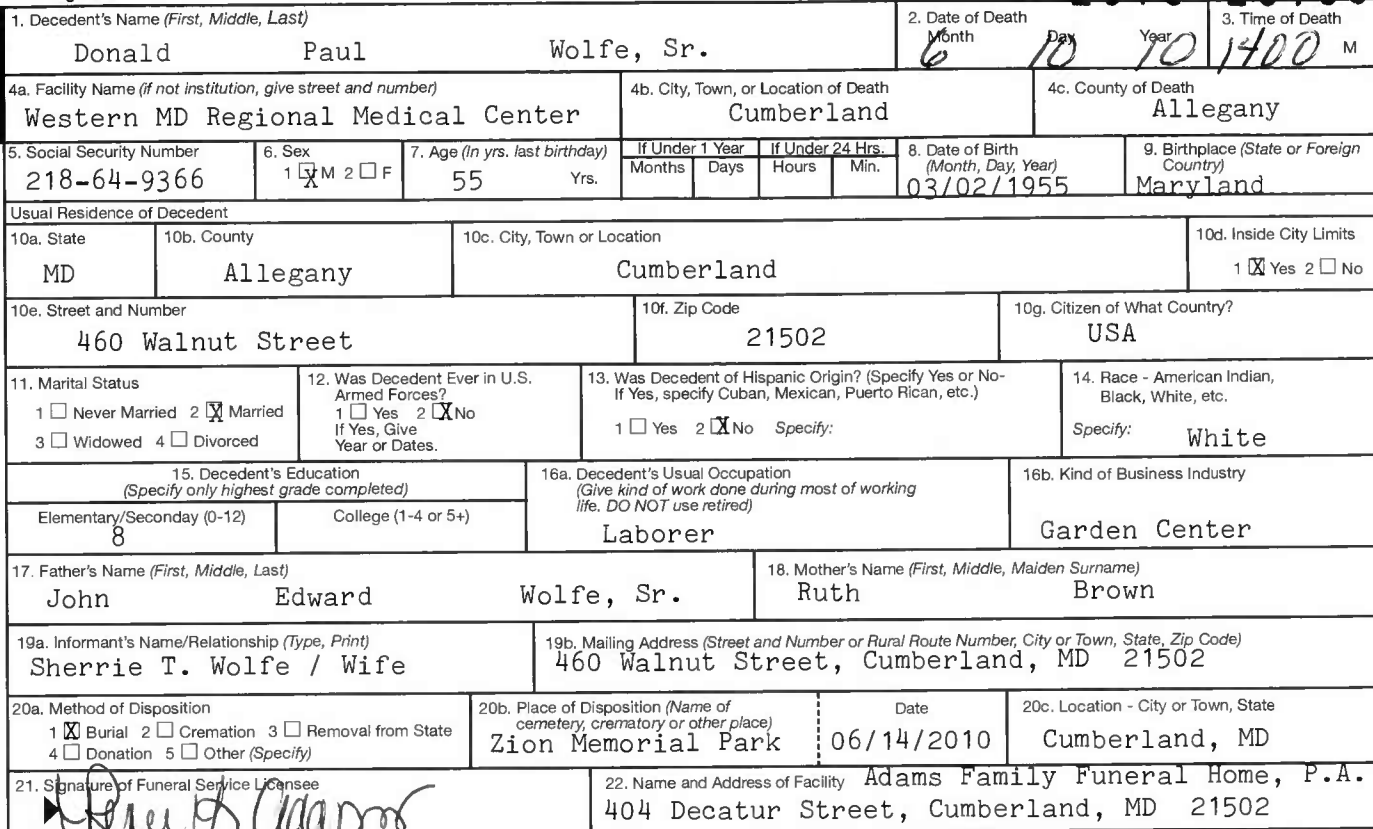 1. Decedent's Name (First, Middle, Last)
Donald Paul Wolfe, Sr.
2. Date of Death
Month Day Year
6 10 10
3. Time of Death
1400 M
4a. Facility Name (if not institution, give street and number)
Western MD Regional Medical Center
4b. City, Town, or Location of Death
Cumberland
4c. County of Death
Allegany
5. Social Security Number
218-64-9366
6. Sex
1 X M 2 ☐ F
7. Age (In yrs. last birthday)
55 Yrs.
If Under 1 Year
Months Days
If Under 24 Hrs.
Hours Min.
8. Date of Birth
(Month, Day, Year)
03/02/1955
9. Birthplace (State or Foreign
Country)
Maryland
Usual Residence of Decedent
10a. State
MD
10b. County
Allegany
10c. City, Town or Location
Cumberland
10d. Inside City Limits
1 X Yes 2 ☐ No
10e. Street and Number
460 Walnut Street
10f. Zip Code
21502
10g. Citizen of What Country?
USA
11. Marital Status
1 ☐ Never Married 2 X Married
3 ☐ Widowed 4 ☐ Divorced
12. Was Decedent Ever in U.S.
Armed Forces?
1 ☐ Yes 2 X No
If Yes, Give
Year or Dates.
13. Was Decedent of Hispanic Origin? (Specify Yes or No-
If Yes, specify Cuban, Mexican, Puerto Rican, etc.)
1 ☐ Yes 2 X No Specify:
14. Race - American Indian,
Black, White, etc.
Specify: White
15. Decedent's Education
(Specify only highest grade completed)
Elementary/Seconday (0-12)
8
College (1-4 or 5+)
16a. Decedent's Usual Occupation
(Give kind of work done during most of working
life. DO NOT use retired)
Laborer
16b. Kind of Business Industry
Garden Center
17. Father's Name (First, Middle, Last)
John Edward Wolfe, Sr.
18. Mother's Name (First, Middle, Maiden Surname)
Ruth Brown
19a. Informant's Name/Relationship (Type, Print)
Sherrie T. Wolfe / Wife
19b. Mailing Address (Street and Number or Rural Route Number, City or Town, State, Zip Code)
460 Walnut Street, Cumberland, MD 21502
20a. Method of Disposition
1 X Burial 2 ☐ Cremation 3 ☐ Removal from State
4 ☐ Donation 5 ☐ Other (Specify)
20b. Place of Disposition (Name of
cemetery, crematory or other place)
Zion Memorial Park
Date
06/14/2010
20c. Location - City or Town, State
Cumberland, MD
21. Signature of Funeral Service Licensee
Adams
22. Name and Address of Facility Adams Family Funeral Home, P.A.
404 Decatur Street, Cumberland, MD 21502